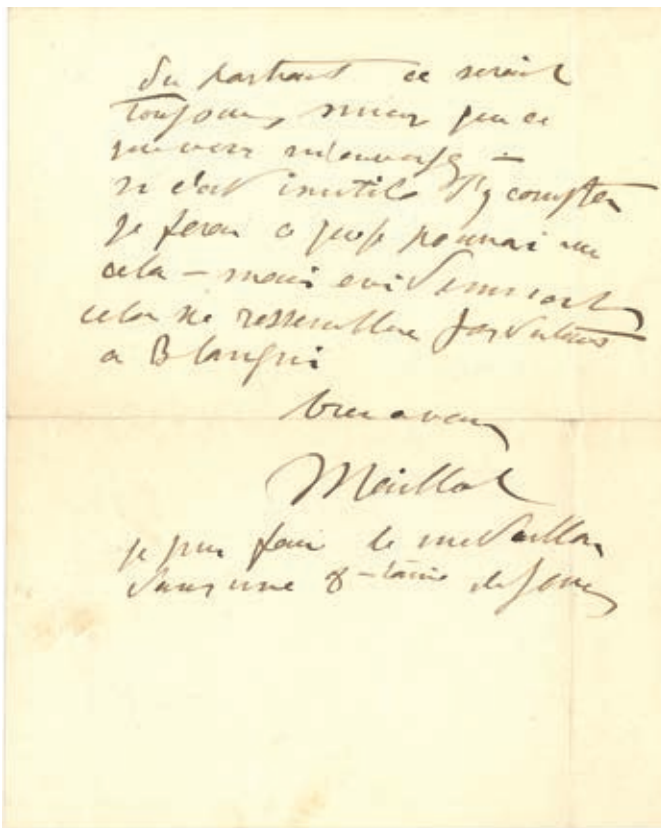 du portrait ce serait
toujours mieux que ce
que vous m'envoyez –
si c'est inutile d'y compter
je ferai ce que je pourrai
cela – mais evidemment
cela ne ressemblera pas du tout
a Blanqui
bien a vous
Maillol
je puis faire le medaillon
dans une 8–taine de jours